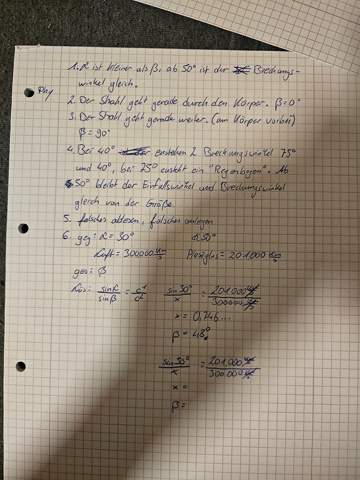 Phy
1. α ist kleiner als β, ab 50° ist der Brechungs-
winkel gleich.
2. Der Strahl geht gerade durch den Körper. β=0°
3. Der Strahl geht gerade weiter. (am Körper vorbei)
β = 90°
4. Bei 40° enstehen 2 Brechungswinkel 75°
und 40°, bei 75° ensteht ein "Regenbogen". Ab
50° bleibt der Einfallswinkel und Brechungswinkel
gleich von der Größe.
5. falsches ablesen, falsches anlegen
6. geg: α = 30° α 50°
Luft = 300000 km/s Plexiglas = 201.000 km/s
ges: β
Lös: sinα/sinβ = c1/c2 sin30°/x = 201.000 km/s / 300000 km/s
x = 0,746...
β = 48°
sin50°/x = 201.000 km/s / 300.000 km/s
x =
β =